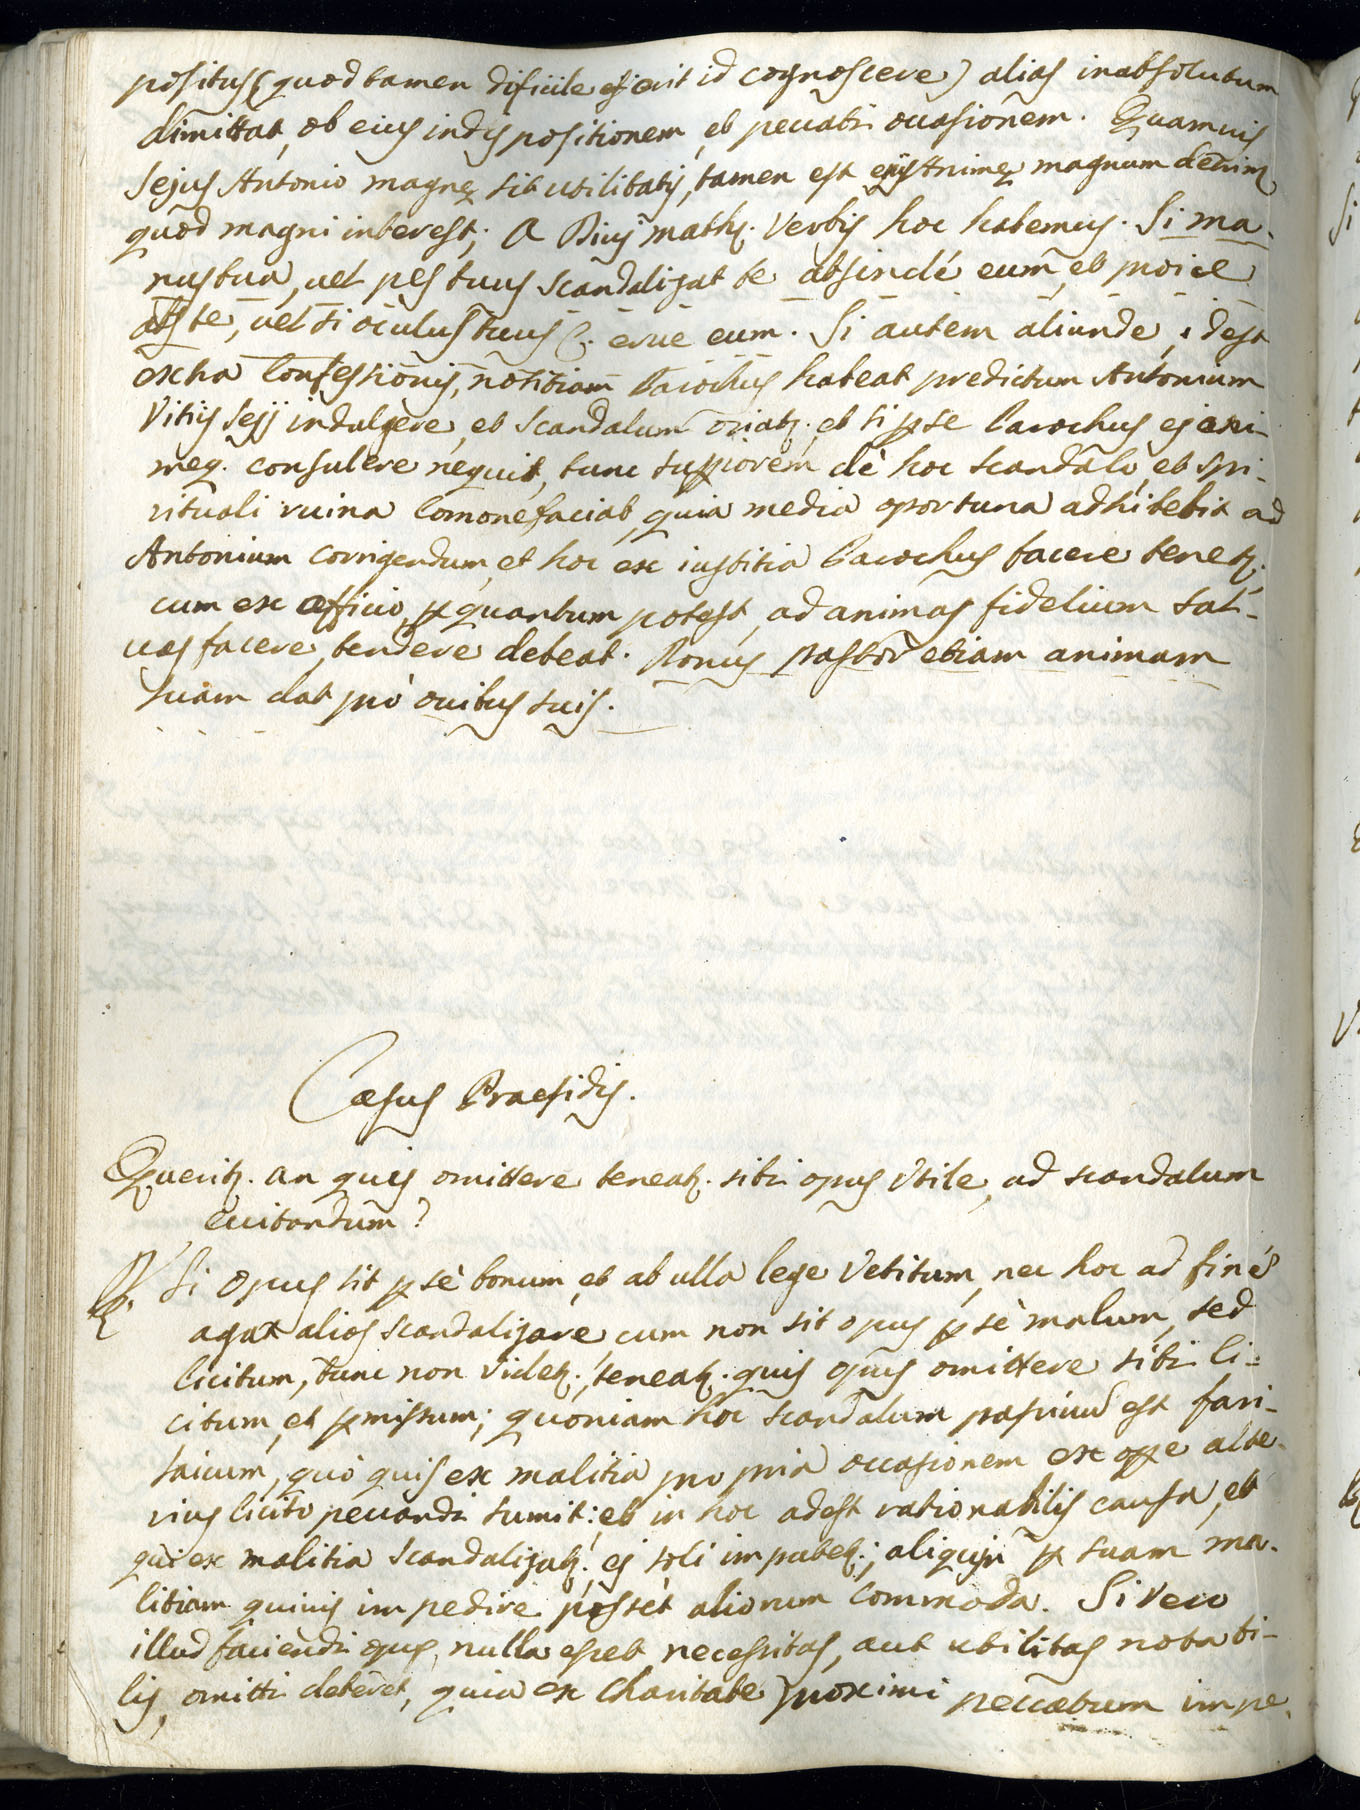 positus (quod tamen dificile erit id cognoscere) alias inabsolutum
dimittat, ob eius indispositionem, et peccati occasionem. Quamuis
Sejus Antonio magnę sit utilitatis, tamen est animę magnum detrim
quod magni interest; A Divi Math. Verbis hoc habemus. Si ma-
nus tua, uel pes tuus scandalizat te absinde eum, et proice
abs te, uel si oculus tuus &. erue eum. Si autem aliunde, idest
extra Confessionis, notitiam Parochus habeat predictum Antonium
Vitiis Sejj indulgere, et scandalum oriatq. et si p se Parochus ej ani-
meq. consulere nequit, tunc supiorem de hoc scandalo, et spi-
rituali ruina Comonefaciat, quia media oportuna adhibebit ad
Antonium corrigendum, et hoc ex iustitia Parochus facere tenetq.
cum ex officio, p quantum potest, ad animas fidelium sal-
uas facere, tendere debeat. Bonus pastor etiam animam
suam dat pro ouibus suis.
Casus Praesidis.
Queritq. an quis omittere teneatq. sibi opus Vtile, ad scandalum
euitandum?
R. Si opus sit p se bonum, et ab ulla lege Vetitum, nec hoc ad finé
agat alios scandalizare cum non sit opus p se malum, sed
licitum, tunc non Videtq., teneatq. quis opus omittere sibi li-
citum, et pmissum; quoniam hoc scandalum passiuum est fari-
saicum, quo quis ex malitia propria occasionem ex ope alte-
rius licito peccandi sumit: et in hoc adest rationabilis causa, et
qui ex malitia scandalizatq. ej soli imputetq.; aliquin p suam ma-
litiam quiuis impedire posset aliorum Commoda. Si Vero
illud faciendi opus, nulla esset necessitas, aut utilitas notabi-
lis, omitti deberet, quia ex Charitate proximi peccatum impe-